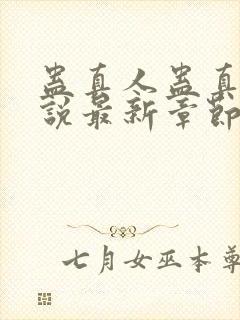 蛊真人蛊真
說最新章節
七月女巫本尊